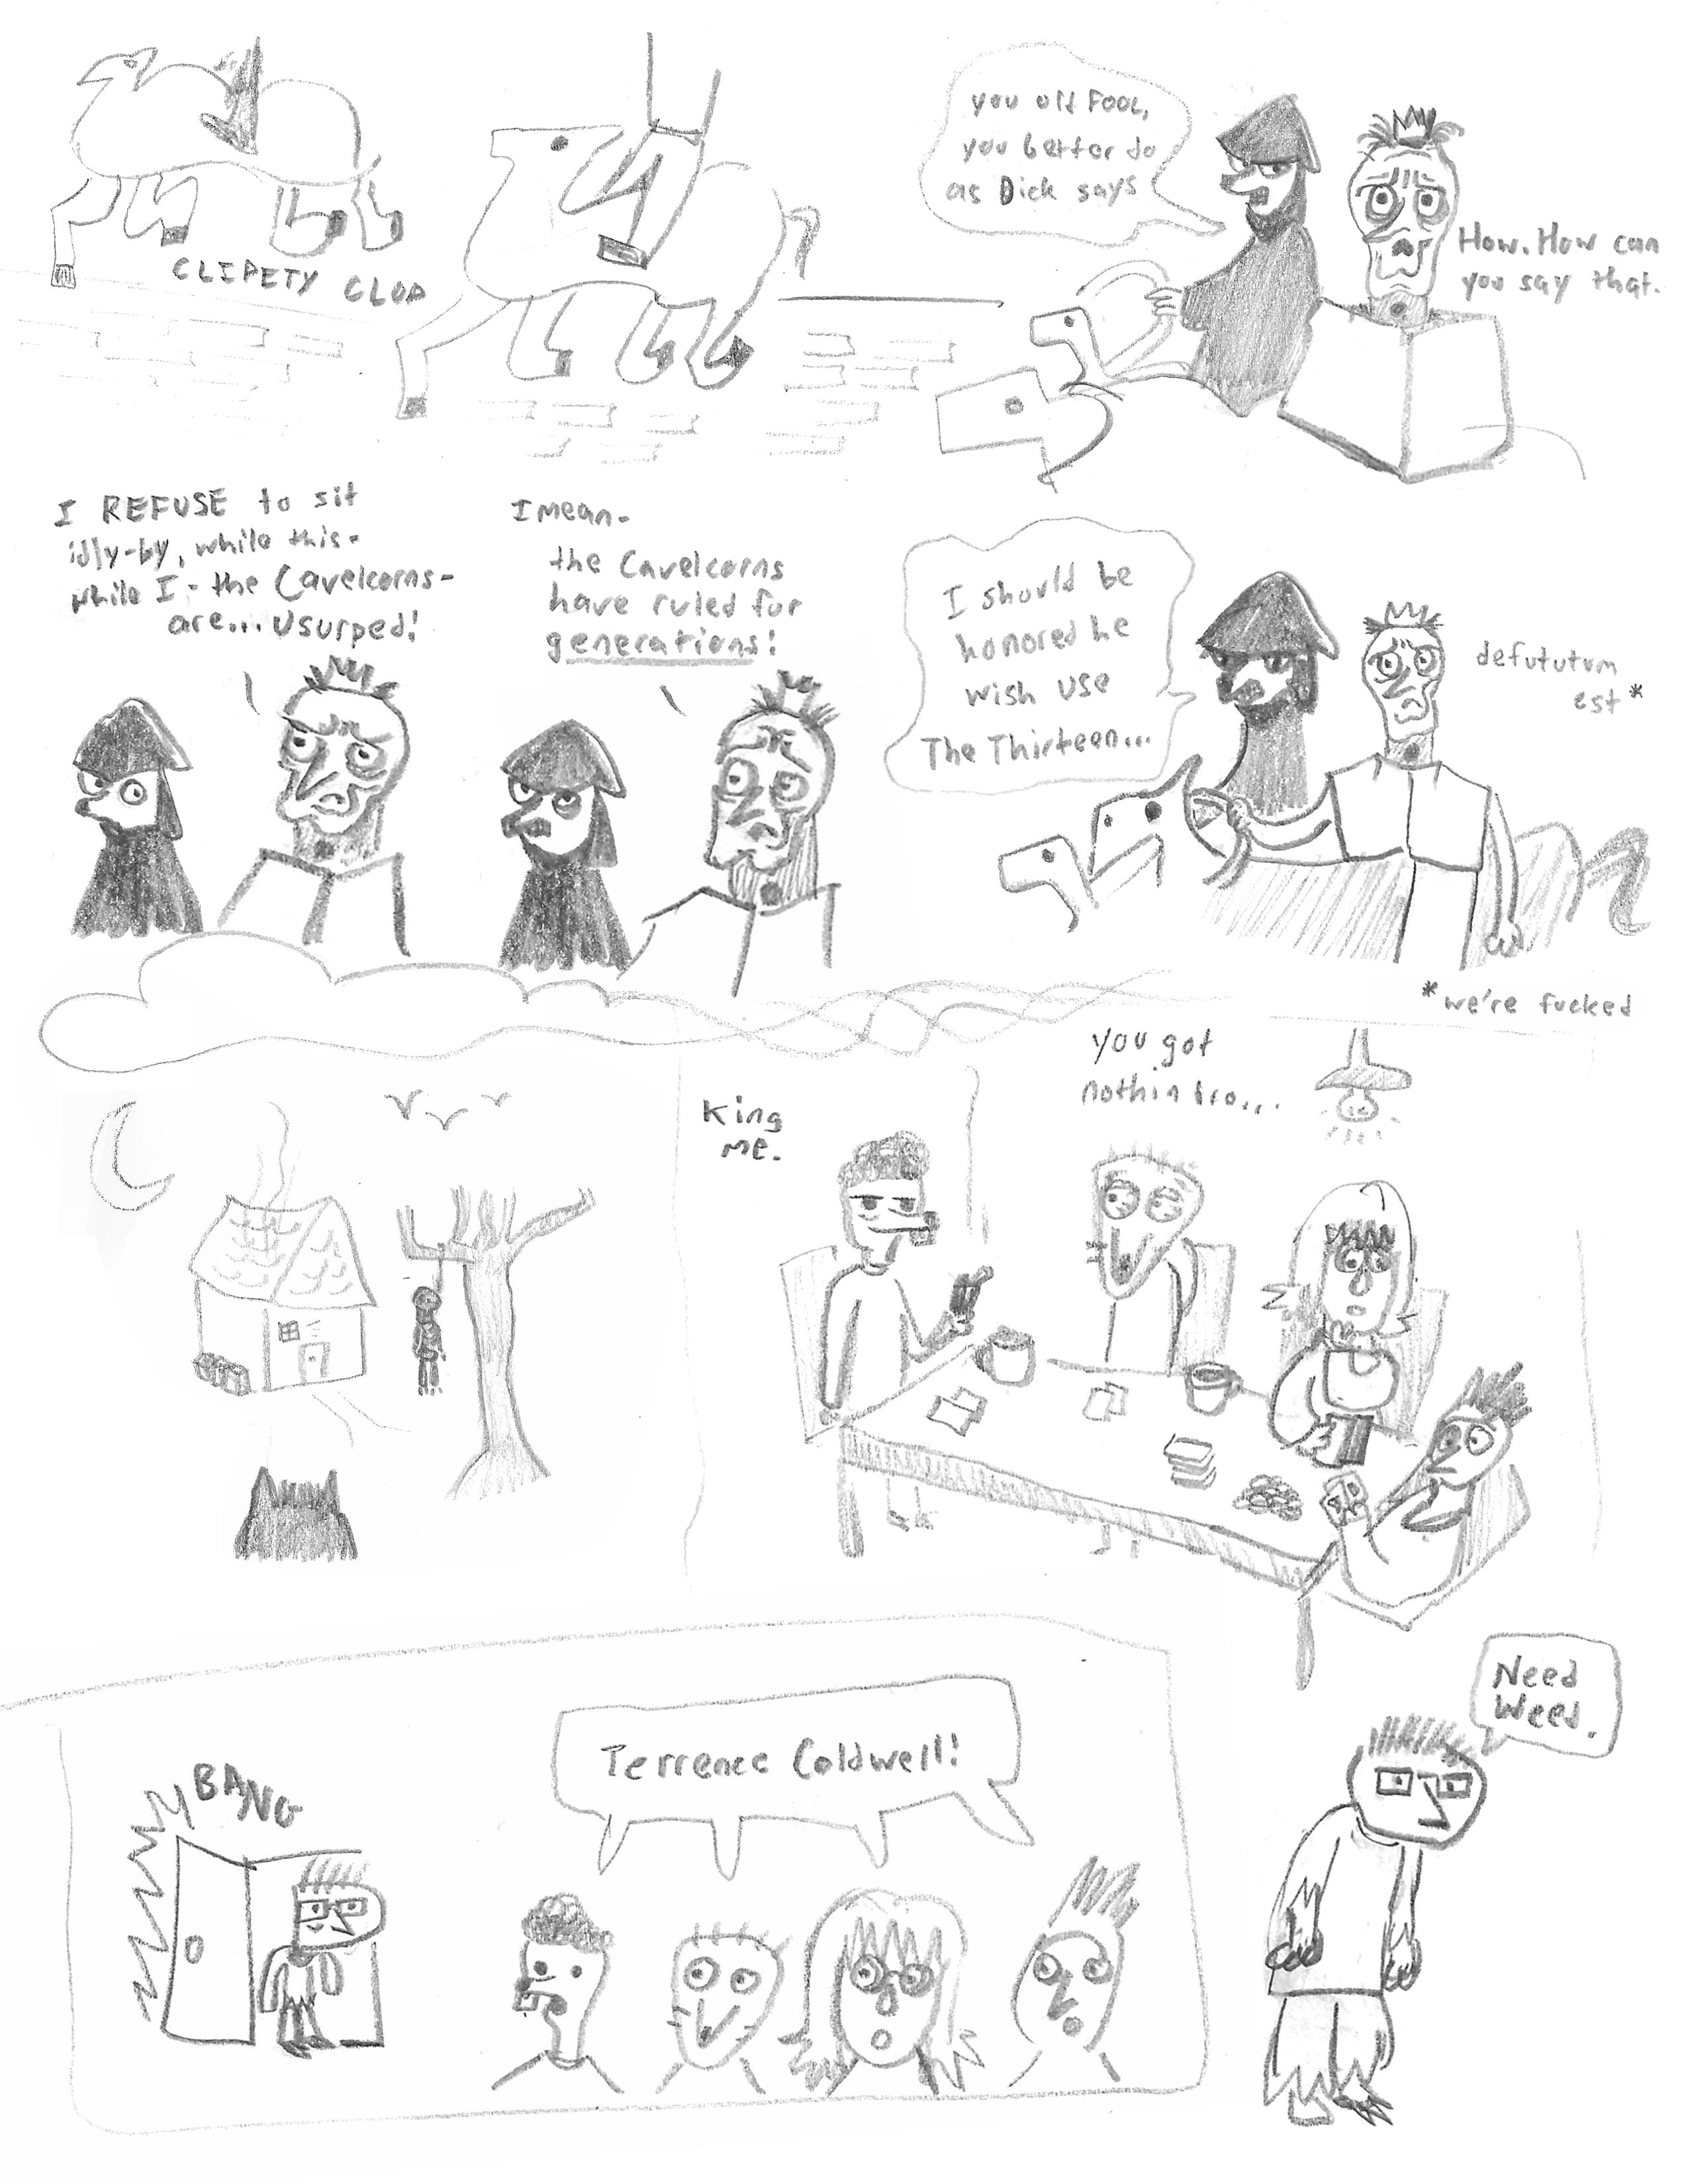 CLIPETY CLOP
you old FOOL,
you better do
as Dick says
How. How can
you say that.
I REFUSE to sit
idly-by, while this-
while I - the Cavelcorns-
are... usurped!
I mean-
the Cavelcorns
have ruled for
generations!
I should be
honored he
wish use
The Thirteen...
defututum
est*
*we're fucked
King
me.
you got
nothin bro...
BANG
Terrence Coldwell!
Need
Weed.